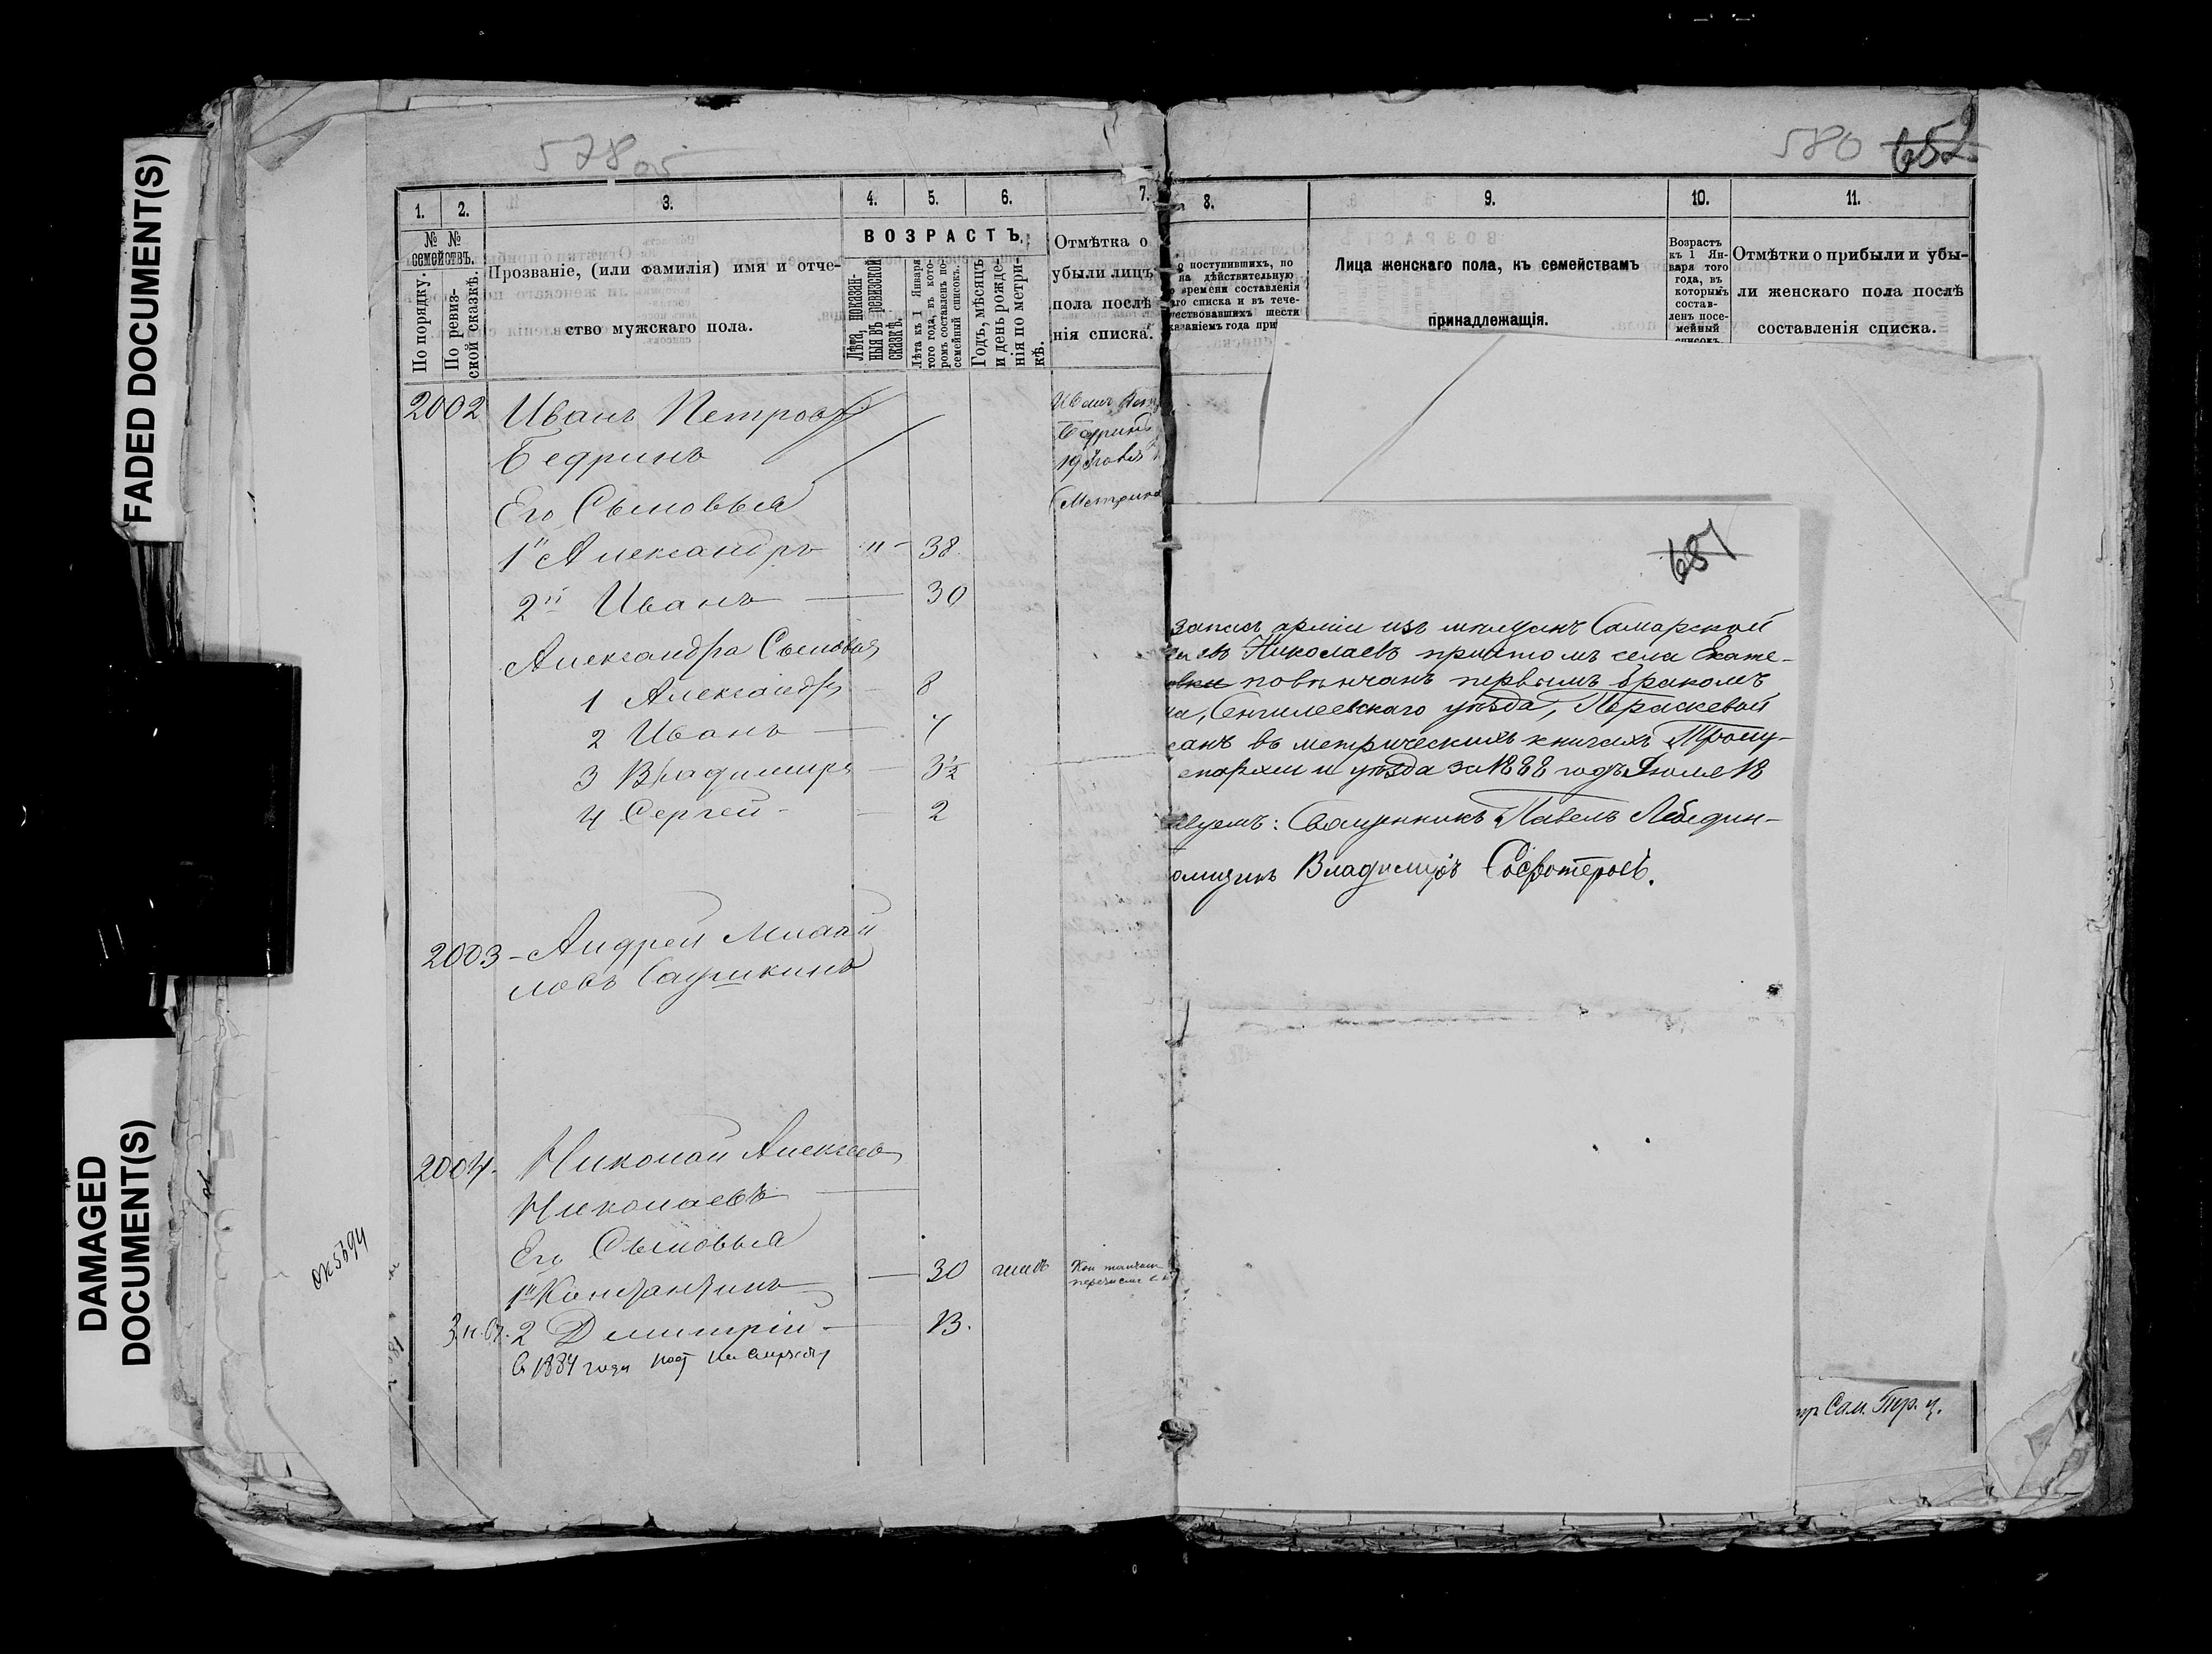 FADED DOCUMENT(S)
DAMAGED
DOCUMENT(S)
578 об
580 652
1. 2. 3. 4. 5. 6. 7.
№ №
семействъ.
По порядку.
По ревиз-
ской сказкѣ.
Прозваніе, (или фамилія) имя и отче-
ство мужскаго пола.
ВОЗРАСТЪ.
Лѣта, показан-
ныя въ ревизской
сказкѣ.
Лѣта къ 1 Января
того года, въ кото-
ромъ составленъ по-
семейный списокъ.
Годъ, мѣсяцъ
и день рожде-
нія по метри-
кѣ.
Отмѣтка о
убыли лицъ
пола послѣ
нія списка.
2002 Иванъ Петровъ
Бедринъ
Его Сыновья
1й Александръ " 38.
2й Иванъ 30
Александра Сыновья
1 Александръ 8
2 Иванъ 7
3 Владимиръ 3½
4 Сергей 2
Иванъ
19
Метрика
2003 Андрей Михай
ловъ Саушкинъ
2004. Николай Алексеев
Николаевъ
Его Сыновья
1й Константинъ 30
2 Димитрій 13.
1884 года
8. 9. 10. 11.
о поступившихъ, по
на дѣйствительную
времени составленія
го списка и въ тече-
ествовавшихъ шести
казаніемъ года при
Лица женскаго пола, къ семействамъ
принадлежащія.
Возрастъ
къ 1 Ян-
варя того
года, въ
которымъ
состав-
ленъ посе-
мейный
списокъ.
Отмѣтки о прибыли и убы-
ли женскаго пола послѣ
составленія списка.
681
запась арміи изъ мѣщанъ Самарской
Николаевъ причтомъ села Екате-
повѣнчанъ первымъ бракомъ
Сенгилеевскаго уѣзда, Параскевой
санъ въ метрическихъ книгахъ Троиц-
епархіи и уѣзда за 1888 годъ Іюля 18
Священникъ Павелъ Лебедин-
Владимиръ Софотеровъ.
Сам.